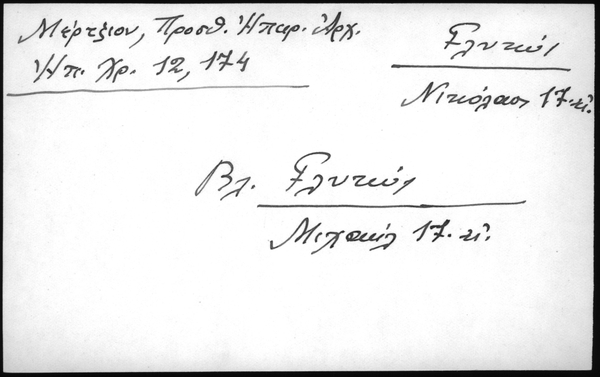 Μέρτζιον, Προσθ. Ἠπειρ. Ἀρχ.
Ἠπ. Χρ. 12, 174
Γλυκύς
Νικόλαος 17. αἰ.
Βλ. Γλυκύς
Μιχαήλ 17. αἰ.